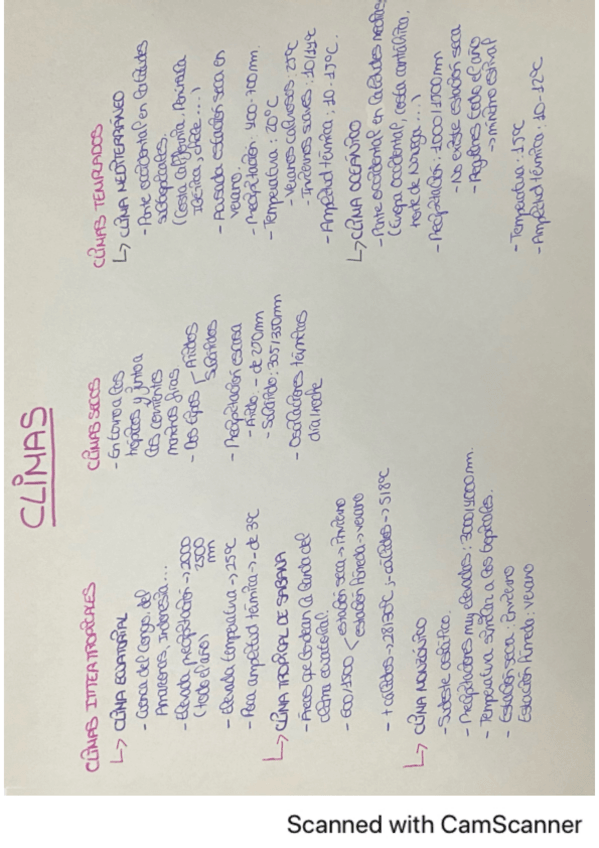 CLIMAS
CLIMAS INTERTROPICALES
↳ CLIMA ECUATORIAL
- Cuenca del Congo, del
Amazonas, Indonesia...
- Elevada precipitación → 2000
2500
mm
(todo el año)
- Elevada temperatura → 25ºC
- Poca amplitud térmica → - de 3ºC
↳ CLIMA TROPICAL DE SABANA
- Áreas que bordean la banda del
clima ecuatorial.
- 600/1500 < estación seca → Invierno
estación húmeda → verano
- + cálidos → 28/30ºC, - cálidos → 5/18ºC
↳ CLIMA MONZÓNICO
- Sudeste asiático.
- Precipitaciones muy elevadas: 3000/4000 mm.
- Temperatura similar a los tropicales.
- Estación seca: Invierno
Estación húmeda: Verano
CLIMAS SECOS
- En torno a los
trópicos y junto a
las corrientes
marinas frías
- Dos tipos < Áridos
Subáridos
- Precipitación escasa
- Árido: - de 250mm
- Subárido: 305/350mm
- Oscilaciones térmicas
día/noche
CLIMAS TEMPLADOS
↳ CLIMA MEDITERRÁNEO
- Parte occidental en latitudes
subtropicales.
(Costa California, Península
Ibérica, Chile...)
- Acusada estación seca en
verano.
- Precipitación: 400-700 mm.
- Temperatura: 20ºC
- Veranos calurosos: 25ºC
- Inviernos suaves: 10/14ºC
- Amplitud térmica: 10-15ºC.
↳ CLIMA OCEÁNICO
- Parte occidental en latitudes medias
(Europa occidental, costa cantábrica,
norte de Noruega...)
- Precipitación: 1000/1500 mm
- No existe estación seca
- Regulares todo el año
→ mínimo estival
- Temperatura: 15ºC
- Amplitud térmica: 10-12ºC
Scanned with CamScanner